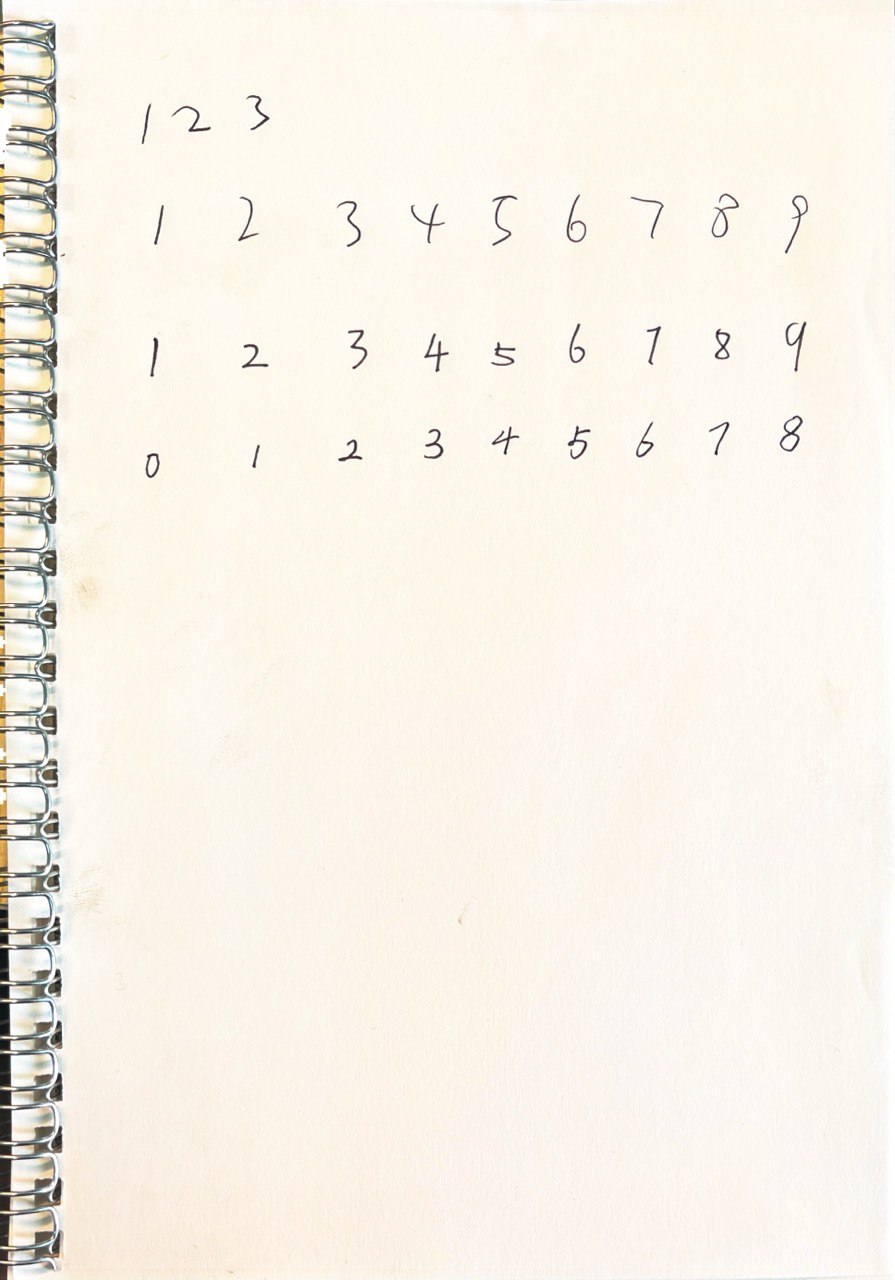 1 2 3
1 2 3 4 5 6 7 8 9
1 2 3 4 5 6 7 8 9
0 1 2 3 4 5 6 7 8